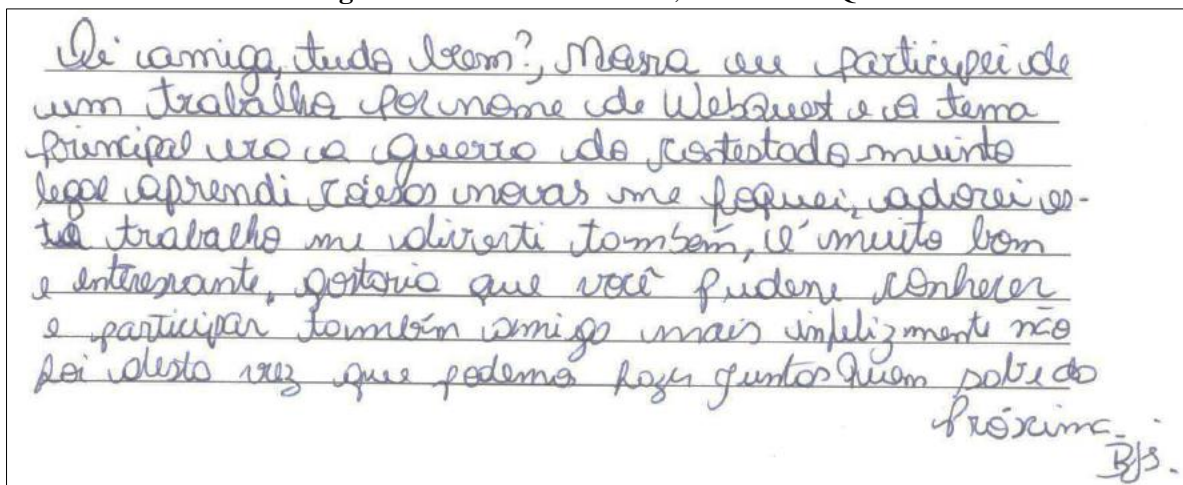 Oi amiga, tudo bem?, Mara eu participei de
um trabalho por nome de WebQuest e o tema
principal era a guerra do contestado muinto
legal aprendi coisas novas me foquei, adorei es-
te trabalho me diverti também, é muito bom
e enteressante, gostaria que você pudesse conhecer
e participar também amiga mais infelizmente não
foi desta vez que podemos fazer juntos Quem sabe da
Próxima.
Bjs.